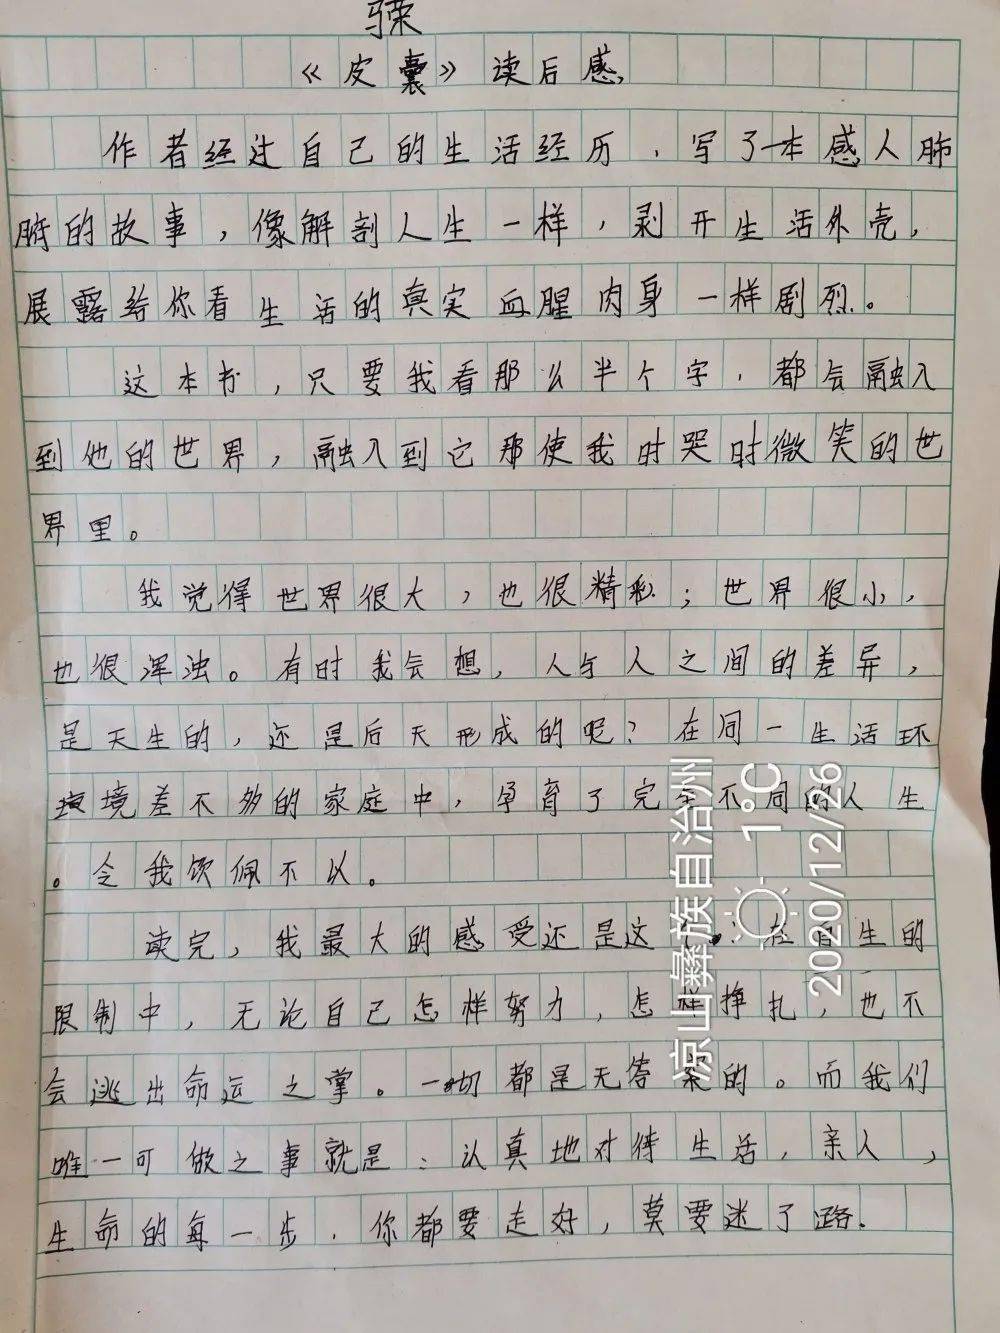 骙
《皮囊》读后感
作者经过自己的生活经历，写了一本感人肺
腑的故事，像解剖人生一样，剥开生活外壳，
展露给你看生活的真实血腥肉身一样剧烈。
这本书，只要我看那么半个字，都会融入
到他的世界，融入到它那使我时哭时微笑的世
界里。
我觉得世界很大，也很精彩；世界很小，
也很浑浊。有时我会想，人与人之间的差异，
是天生的，还是后天形成的呢？在同一生活环
境差不多的家庭中，孕育了完全不同的人生
。令我饮佩不以。
读完，我最大的感受还是这 生的
限制中，无论自己怎样努力，怎样挣扎，也不
会逃出命运之掌。一切都是无答案的。而我们
唯一可做之事就是：认真地对待生活，亲人，
生命的每一步，你都要走好，莫要迷了路.
凉山彝族自治州
1°C
2020/12/26